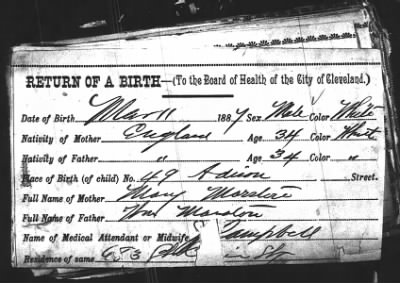 RETURN OF A BIRTH—(To the Board of Health of the City of Cleveland.)
Date of Birth Mar 11 1887 Sex Male Color White
Nativity of Mother England Age 34 Color White
Nativity of Father " Age 34 Color "
Place of Birth (of child) No. 49 Adison Street.
Full Name of Mother Mary
Full Name of Father Wm
Name of Medical Attendant or Midwife Campbell
Residence of same 673